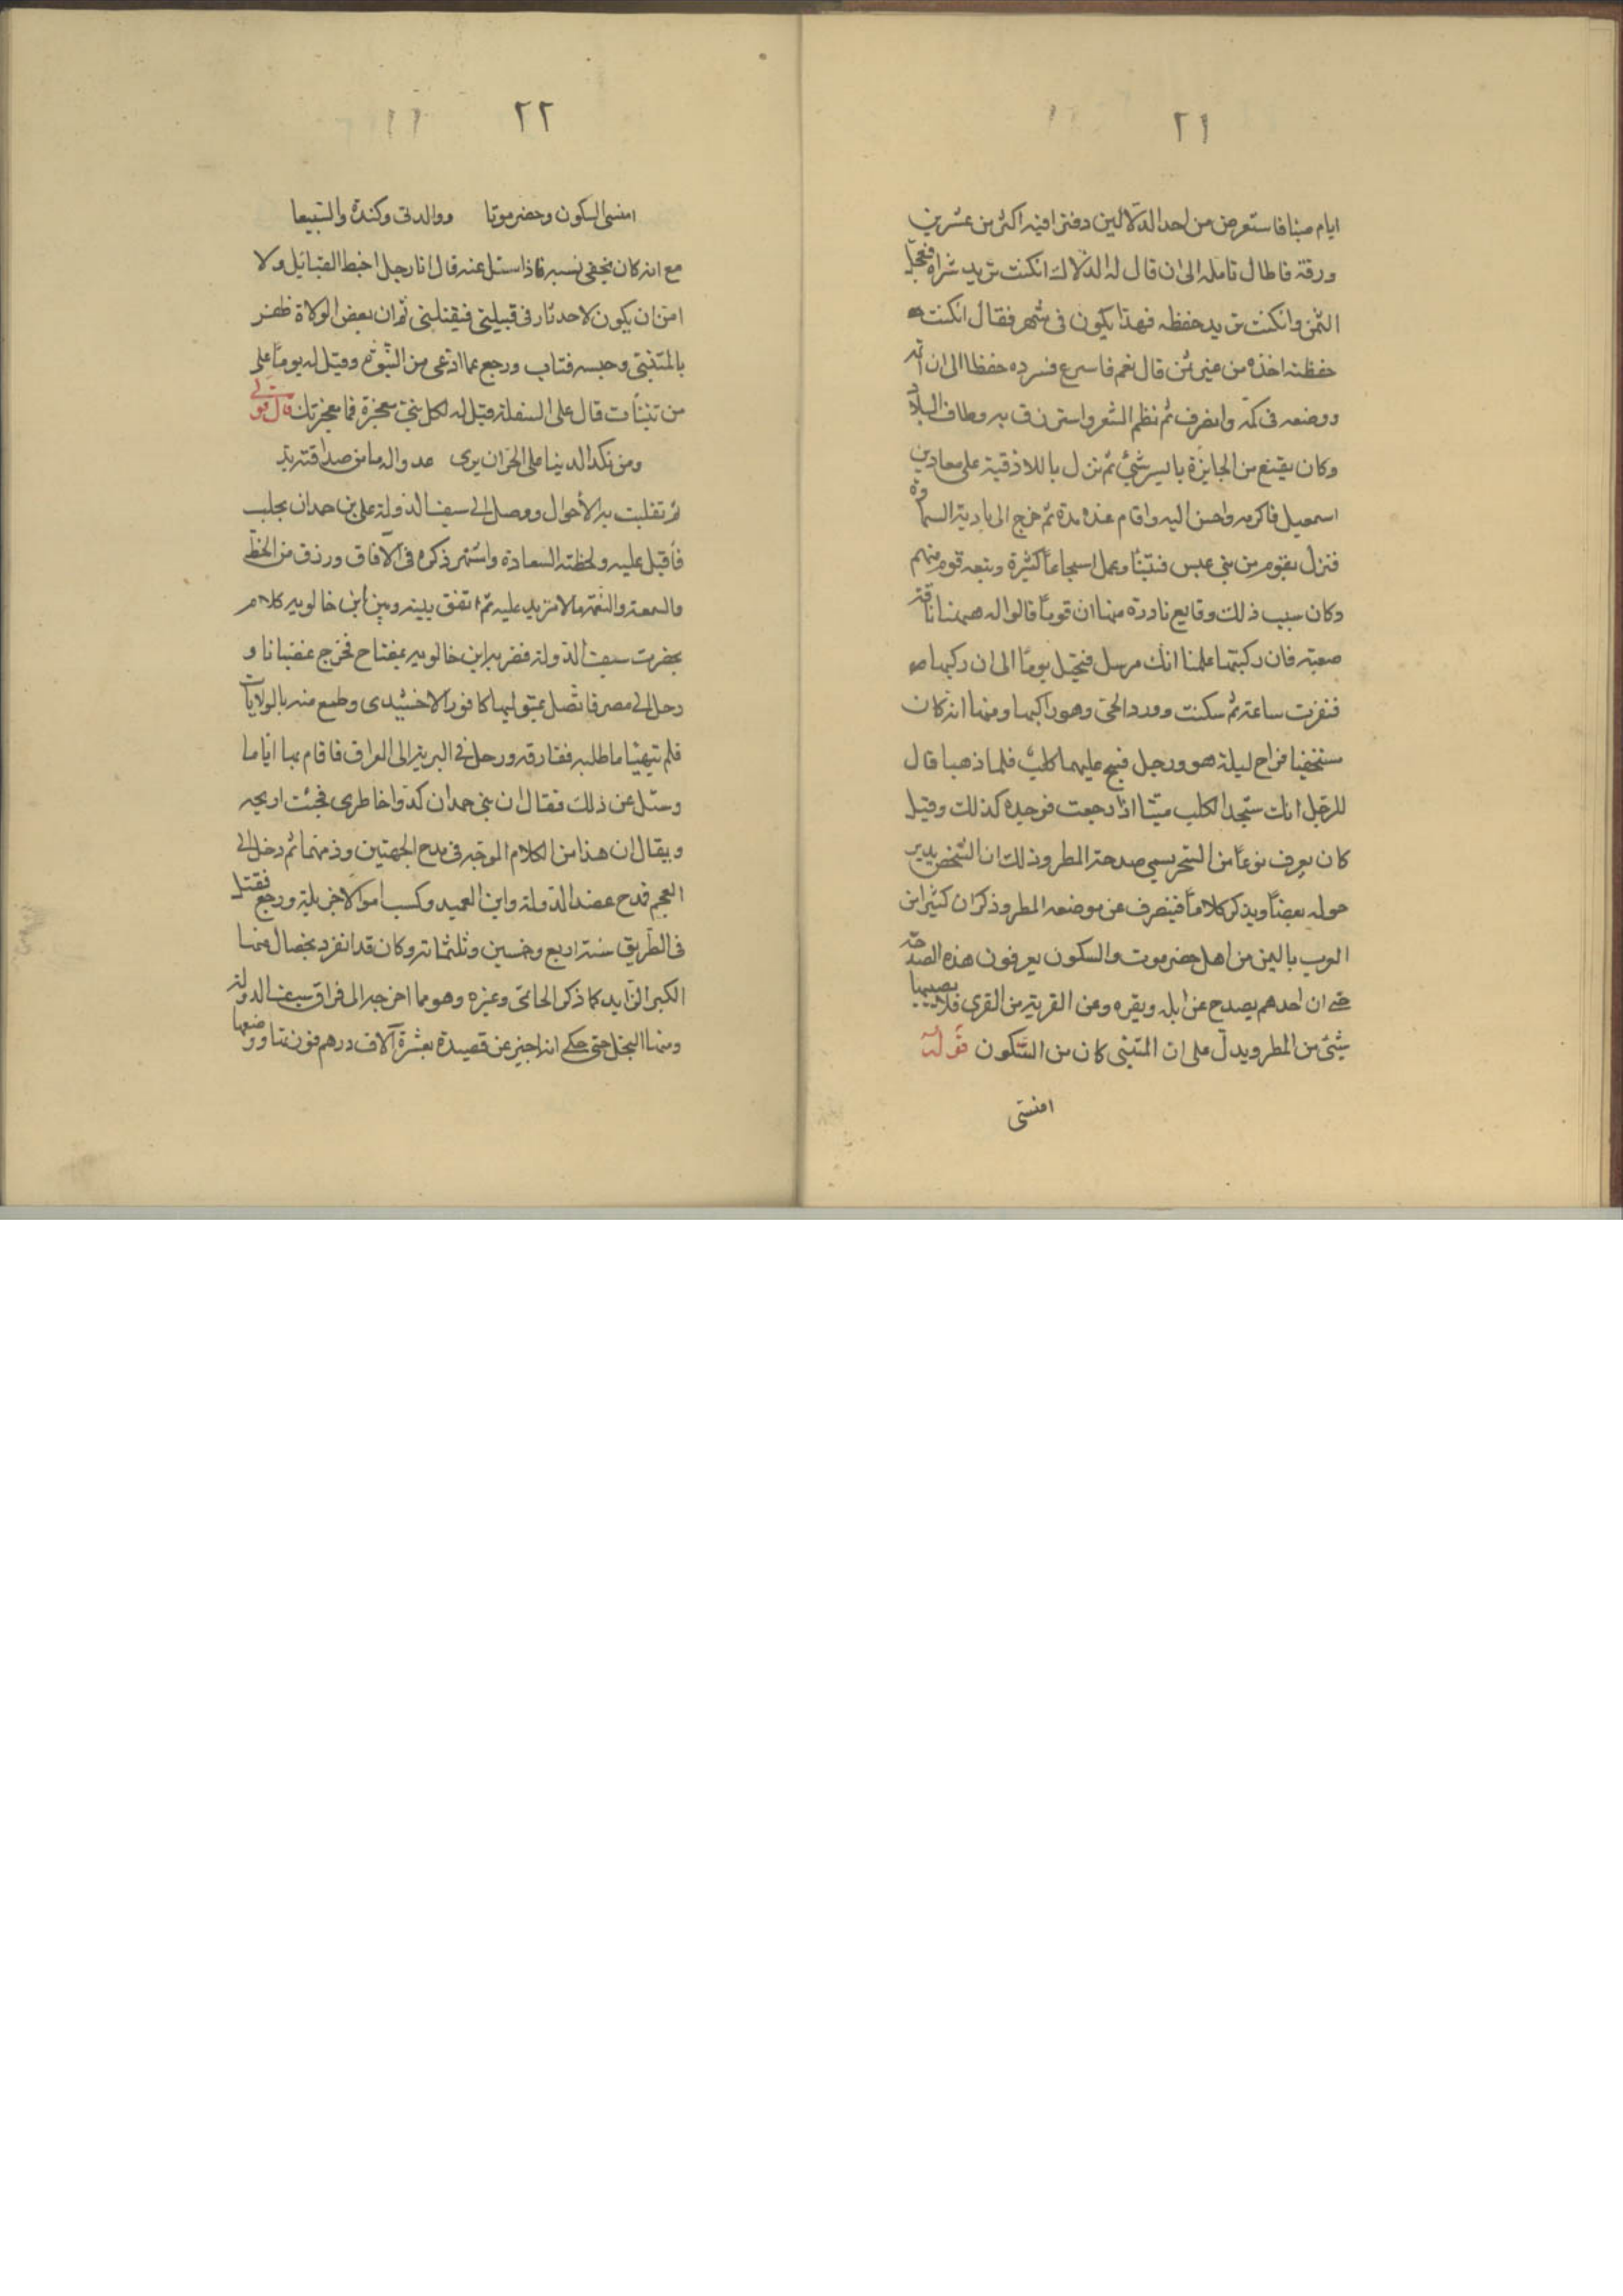 ٢١
ايام صبنا فاستعرض من احد الدلالين دفترا فيه اكثر من عشرين
ورقة فاطال تامله الى ان قال له الدلال ان كنت تريد شراه فعجل
الثمن وان كنت تريد حفظه فهذا يكون في شهر فقال ان كنت
حفظته اخذه من غير ثمن قال نعم فاسرع فسرده حفظا الى ان اتمه
ووضعه في كمه وانصرف ثم نظم الشعر واسترزق به وطاف البلاد
وكان يقنع من الجايزة بايسر شيئ ثم نزل باللاذقية على معاد بن
اسمعيل فاكرمه واحسن اليه واقام عنده مدة ثم خرج الى بادية السماوة
فنزل بقوم من بني عبس فتنبأ وعمل اسجاعاً كثيرة وتبعه قوم منهم
وكان سبب ذلك وقايع نادرة منها ان قوماً قالوا له ههنا ناقة
صعبة فان ركبتها علمنا انك مرسل فتحيل يوماً الى ان ركبها
فنفرت ساعة ثم سكنت وورد الحي وهو راكبها ومنها انه كان
مستخفيا فراح ليلة هو ورجل فنبح عليهما كلب فلما ذهبا قال
للرجل انك ستجد الكلب ميتا اذا رجعت فوجده كذلك وقيل
كان يعرف نوعاً من السحر يسمي صدحة المطر وذلك ان الشخص يدير
حوله بعصاً ويذكر كلاماً فينصرف عن موضعه المطر وذكر ان كثيرا من
العرب باليمن من اهل حضرموت والسكون يعرفون هذه الصدحة
حتى ان احدهم يصدح عن ابله وبقره وعن القرية من القرى فلا يصيبها
شيئ من المطر ويدل على ان المتنبي كان من السكون قوله
امنسي
٢٢
امنسي السكون وحضرموتا ووالدتي وكندة والسبيعا
مع انه كان يخفي نسبه فاذا سئل عنه قال انا رجل اخبط القبائل ولا
امن ان يكون لاحد ثار في قبيلتي فيقتلني ثم ان بعض الولاة ظفر
بالمتنبي وحبسه فتاب ورجع عما ادعى من النبوة وقيل له يوماً على
من تنبأت قال على السفلة قيل له لكل نبي معجزة فما معجزتك قال قولي
ومن نكد الدنيا على الحر ان يرى عدوا له ما من صداقته بد
ثم تقلبت به الأحوال ووصل الى سيف الدولة علي بن حمدان بحلب
فأقبل عليه ولحظته السعادة واشتهر ذكره في الآفاق ورزق من الحظ
والسمعة والنعمة ما لا مزيد عليه ثم اتفق بينه وبين ابن خالويه كلام
بحضرت سيف الدولة فضربه ابن خالويه بمفتاح فخرج غضبانا و
رحل الى مصر فاتصل بمتوليها كافور الاخشيدى وطمع منه بالولايات
فلم يتهيأ ما طلبه ففارقه ورحل في البرية الى العراق فاقام بها اياما
وسئل عن ذلك فقال ان بني حمدان كدوا خاطرى فجئت اريحه
ويقال ان هذا من الكلام الموجه في مدح الجهتين وذمهما ثم دخل الى
العجم فمدح عضد الدولة وابن العميد وكسب اموالا جزيلة ورجع فقتل
في الطريق سنة اربع وخمسين وثلثمائة وكان قد انفرد بخصال منها
الكبر الزايد كما ذكر الحاتمي وغيره وهو مما اخرجه الى فراق سيف الدولة
ومنها البخل حتى حكي انه اجيز عن قصيدة بعشرة آلاف درهم فوزنها ووضعها